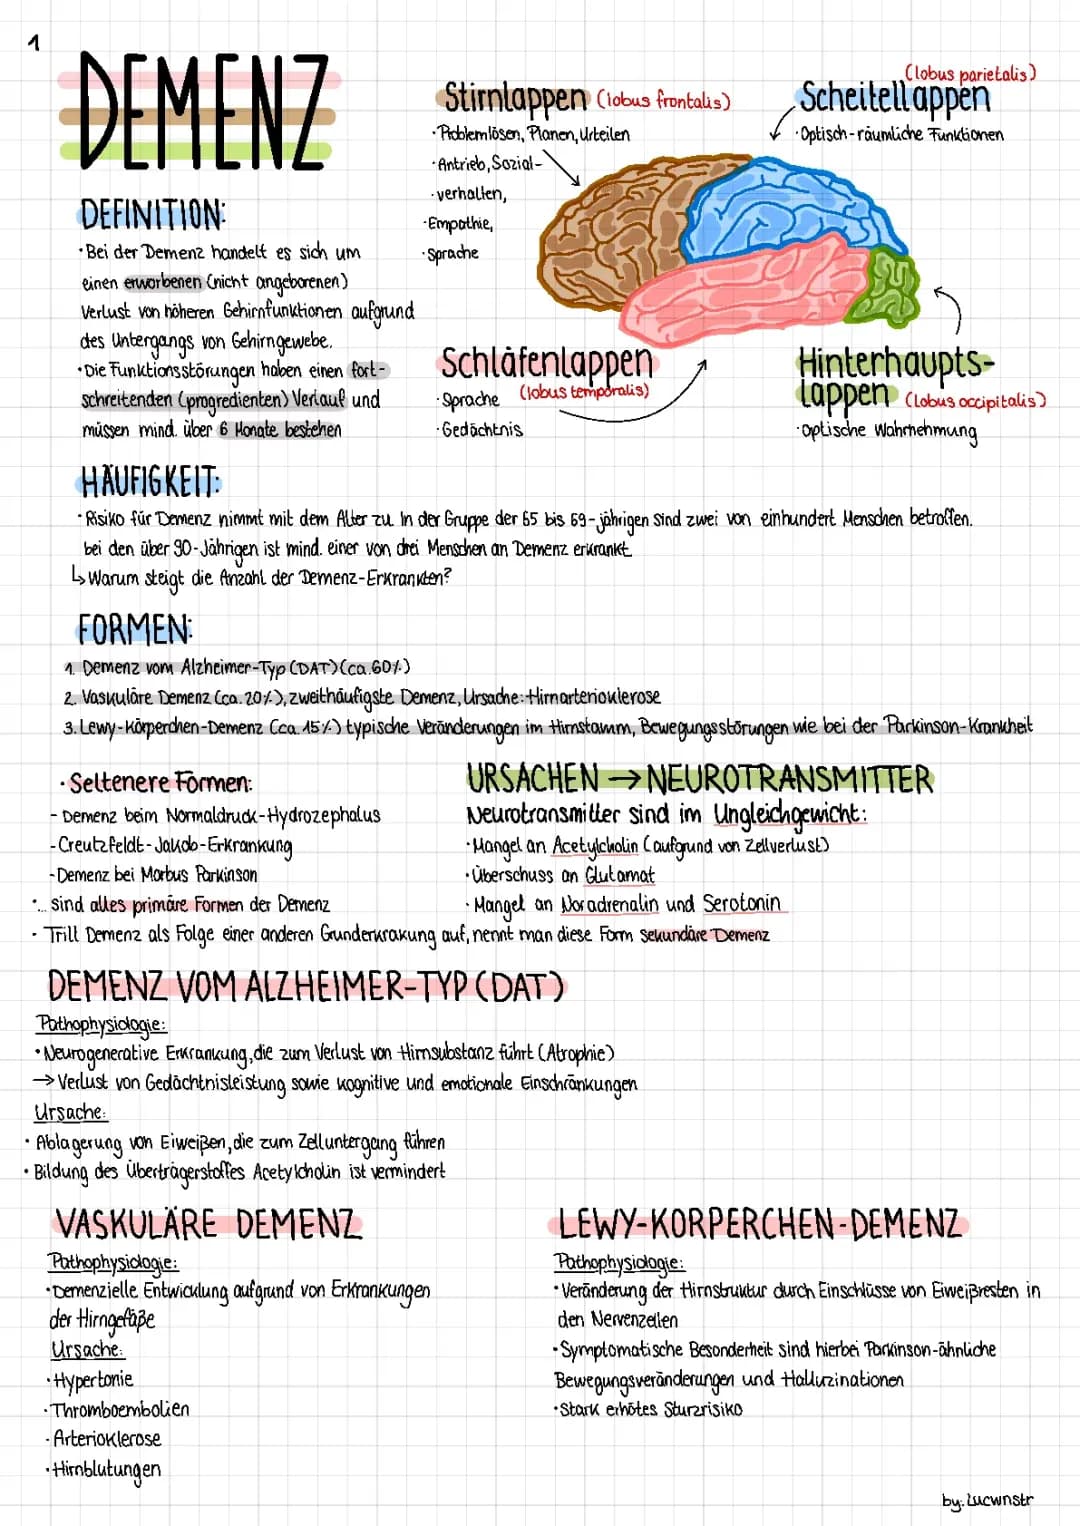 1
DEMENZ
DEFINITION:
·Bei der Demenz handelt es sich um
einen erworbenen (nicht angeborenen)
Verlust von höheren Gehirnfunktionen aufgrund
des Untergangs von Gehirngewebe.
·Die Funktionsstörungen haben einen fort-
schreitenden (progredienten) Verlauf und
müssen mind. über 6 Monate bestehen
Stirnlappen (lobus frontalis)
·Problemlösen, Planen, Urteilen
·Antrieb, Sozial-
·verhalten,
·Empathie,
·Sprache
(lobus parietalis)
Scheitellappen
·Optisch-räumliche Funktionen
Schläfenlappen
(lobus temporalis)
·Sprache
·Gedächtnis
Hinterhaupts-
lappen (lobus occipitalis)
·optische Wahrnehmung
HÄUFIGKEIT:
·Risiko für Demenz nimmt mit dem Alter zu. In der Gruppe der 65 bis 69-jährigen sind zwei von einhundert Menschen betroffen.
bei den über 90-Jährigen ist mind. einer von drei Menschen an Demenz erkrankt.
↳Warum steigt die Anzahl der Demenz-Erkrankten?
FORMEN:
1. Demenz vom Alzheimer-Typ (DAT) (ca. 60%)
2. Vaskuläre Demenz (ca. 20%), zweithäufigste Demenz, Ursache: Hirnarteriosklerose
3. Lewy-Körperchen-Demenz (ca. 15%) typische Veränderungen im Hirnstamm, Bewegungsstörungen wie bei der Parkinson-Krankheit
·Seltenere Formen:
- Demenz beim Normaldruck-Hydrozephalus
- Creutzfeldt-Jakob-Erkrankung
- Demenz bei Morbus Parkinson
·... sind alles primäre Formen der Demenz
· Tritt Demenz als Folge einer anderen Grunderkrakung auf, nennt man diese Form sekundäre Demenz
URSACHEN → NEUROTRANSMITTER
Neurotransmitter sind im Ungleichgewicht:
·Mangel an Acetylcholin (aufgrund von Zellverlust)
·Überschuss an Glutamat
·Mangel an Noradrenalin und Serotonin
DEMENZ VOM ALZHEIMER-TYP (DAT)
Pathophysiologie:
·Neurogenerative Erkrankung, die zum Verlust von Hirnsubstanz führt (Atrophie)
→ Verlust von Gedächtnisleistung sowie kognitive und emotionale Einschränkungen
Ursache:
· Ablagerung von Eiweißen, die zum Zelluntergang führen
· Bildung des Überträgerstoffes Acetylcholin ist vermindert
VASKULÄRE DEMENZ
Pathophysiologie:
·Demenzielle Entwicklung aufgrund von Erkrankungen
der Hirngefäße
Ursache:
·Hypertonie
·Thromboembolien
·Arterioklerose
·Hirnblutungen
LEWY-KÖRPERCHEN-DEMENZ
Pathophysiologie:
·Veränderung der Hirnstruktur durch Einschlüsse von Eiweißresten in
den Nervenzellen
·Symptomatische Besonderheit sind hierbei Parkinson-ähnliche
Bewegungsveränderungen und Halluzinationen
·Stark erhötes Sturzrisiko
by: Lucwnstr